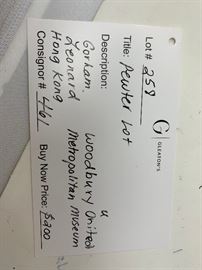 G
GLEATON'S
Lot # 259
Title: Pewter Lot
Description:
Gorham Woodbury
Leonard u United
Hong Kong Metropolitan Museum
Consignor # 461 Buy Now Price: $200